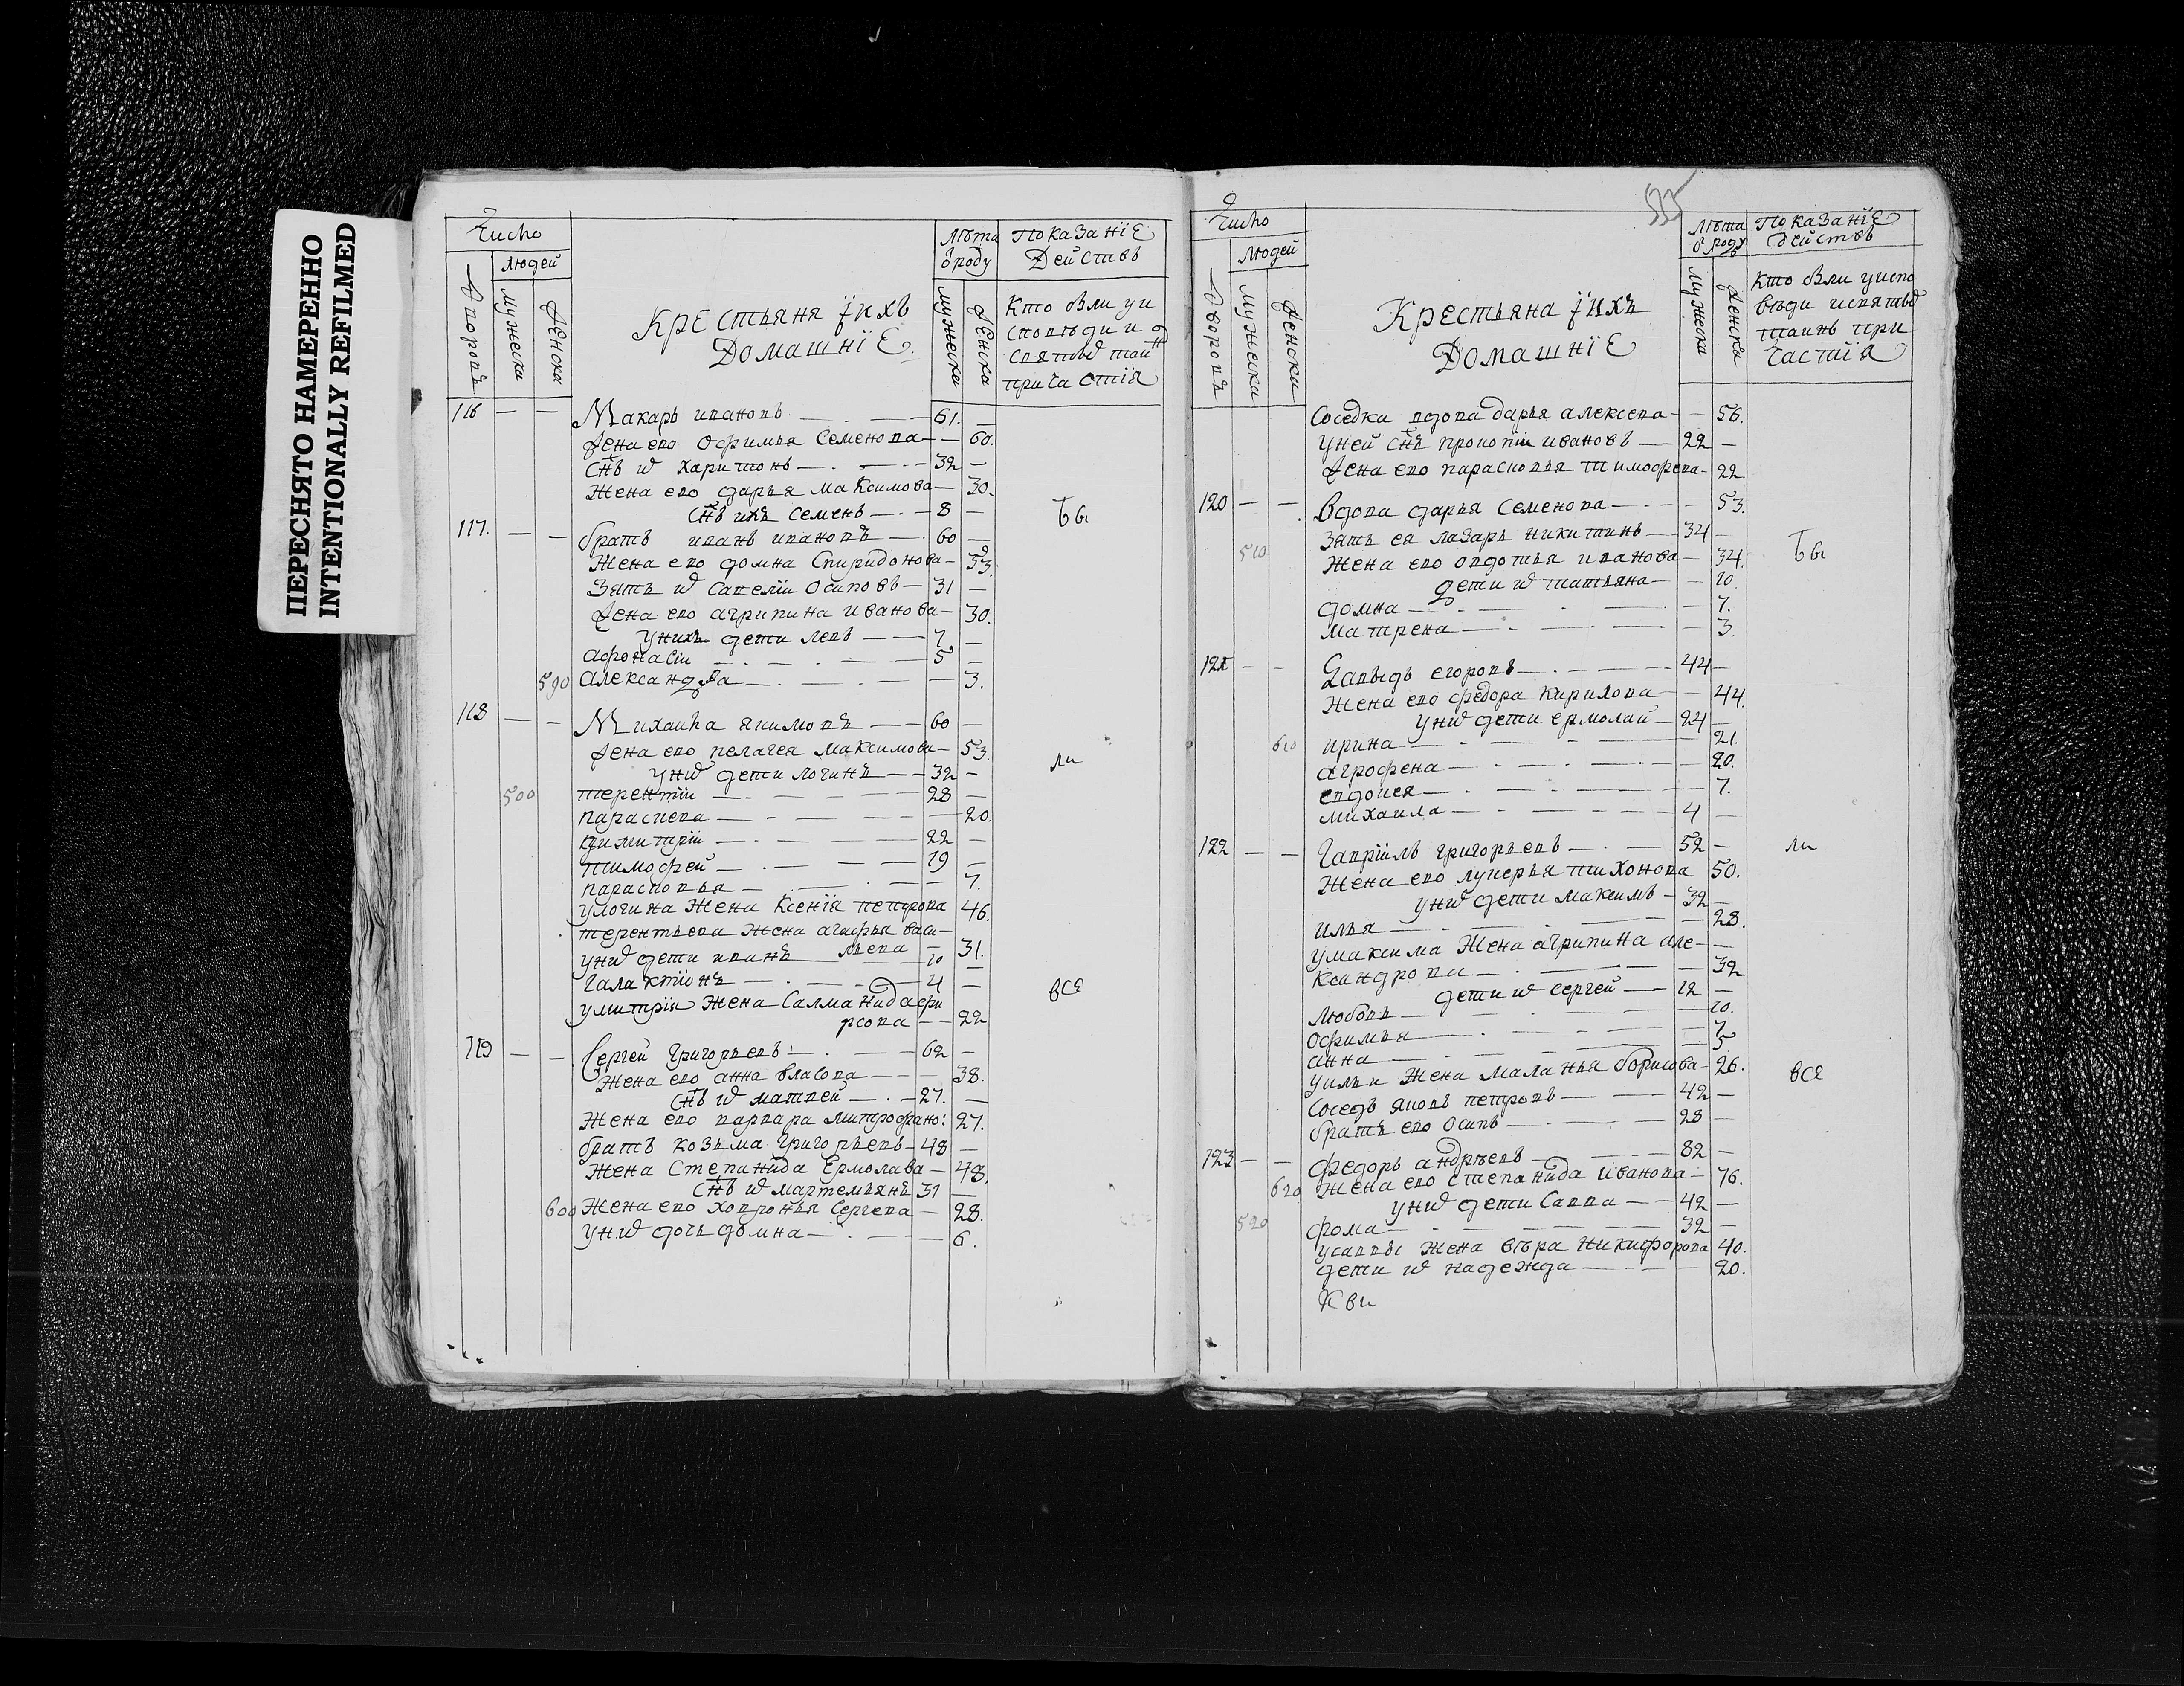 ПЕРЕСНЯТО НАМЕРЕННО
INTENTIONALLY REFILMED
Число
Людей
Дворовъ
Мужеска
Женска
Крестьяня ихъ
Домашніе
Лѣта
ѿ роду
Мужеска
Женска
Показаніе
Действъ
Кто были у и
споведи и
святыхъ таи
причастія
116 — — Макаръ ивановъ — 61. —
Жена ево офимья Семенова — 60.
Снъ их харитонъ — 32 —
Жена ево дарья максимова — 30.
Снъ ихъ Семенъ — 8 —
Бы
117. — — братъ иванъ ивановъ — 60 —
Жена ево домна Спиридонова — 53.
Зять их Савелiи осиповъ — 31 —
Жена ево агрипина иванова — 30.
Унихъ дети левъ — 7 —
Афонасiи — 5 —
590 Александра — 3.
118 — — Михаила якимовъ — 60 —
Жена ево пелагея максимова — 53.
ли
Уних дети логинъ — 32 —
500 терентiи — 28 —
параскева — 20.
димитрiи — 22 —
тимофей — 19 —
парасковья — 7.
Улогина Жена Ксенiя петрова 46.
терентьева жена агафья васи—
львена — 31.
Уних дети иванъ 10 —
галактiонъ — 4 —
все
Умитрiя Жена Саламанида фи
рсова — 22
119 — — Сергей григорьевъ — 62 —
Жена ево анна власова — 38.
Снъ их матвей — 27. —
Жена ево варвара митрофано: 27.
братъ козьма григорьевъ — 48 —
Жена Степанида Ермолава — 48.
Снъ их мартемьянъ 31 —
600 Жена ево ховронья Сергева — 28.
Уних дочь домна — 6.
335
Число
Людей
Дворовъ
Мужески
Женски
Крестьяна ихъ
Домашніе
Лѣта
ѿ роду
Мужеска
Женска
Показанїе
действъ
Кто были у испо
вѣди и святыхъ
таинъ при
частия
Соседка вдова дарья алексева — 56.
Уней Снъ прокопiи ивановъ — 22 —
Жена ево парасковья тимофева — 22
120 — — Вдова дарья Семенова — 53.
Зять ея лазарь никитинъ — 34 —
510 Жена ево овдотья иванова — 34.
Бы
дети их татьяна — 10.
домна — 7.
матрена — 3.
121 — — Давыдъ егоровъ — 44 —
Жена ево федора кирилова — 44.
Уних дети ермолаи — 24 —
610 ирина — 21.
агрофена — 20.
евдокея — 7.
михаила — 4 —
122 — — Гаврiилъ григорьевъ — 52 —
ли
Жена ево лукерья тихонова 50.
Уних дети максимъ — 32 —
илья — 28.
Умаксима Жена агрипина але—
ксандрова — 32
дети их сергей — 12 —
любовь — 10.
офимья — 7
анна — 5
Уильи Жена маланья борисова — 26.
все
Соседъ яковъ петровъ — 42 —
братъ ево осипъ — 28 —
123 — — Федоръ андреевъ — 82 —
620 Жена ево степанида иванова — 76.
Уних дети Савва — 42 —
520 фома — 32 —
Усаввы жена вѣра никифорова 40.
дети их надежда — 20.